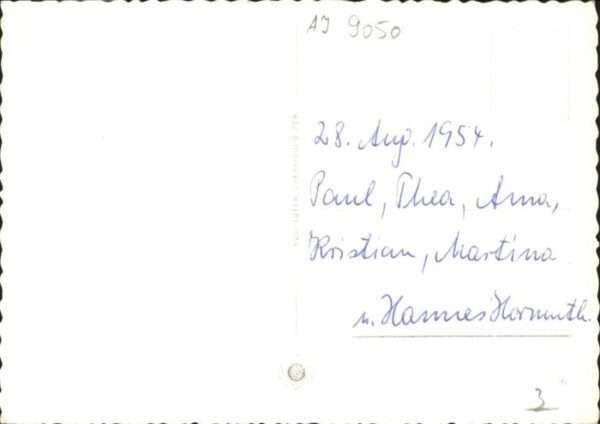 AJ 9050
28. Aug. 1954.
Paul, Thea, Anna,
Kristian, Martina
u. Hannes Hormuth.
3